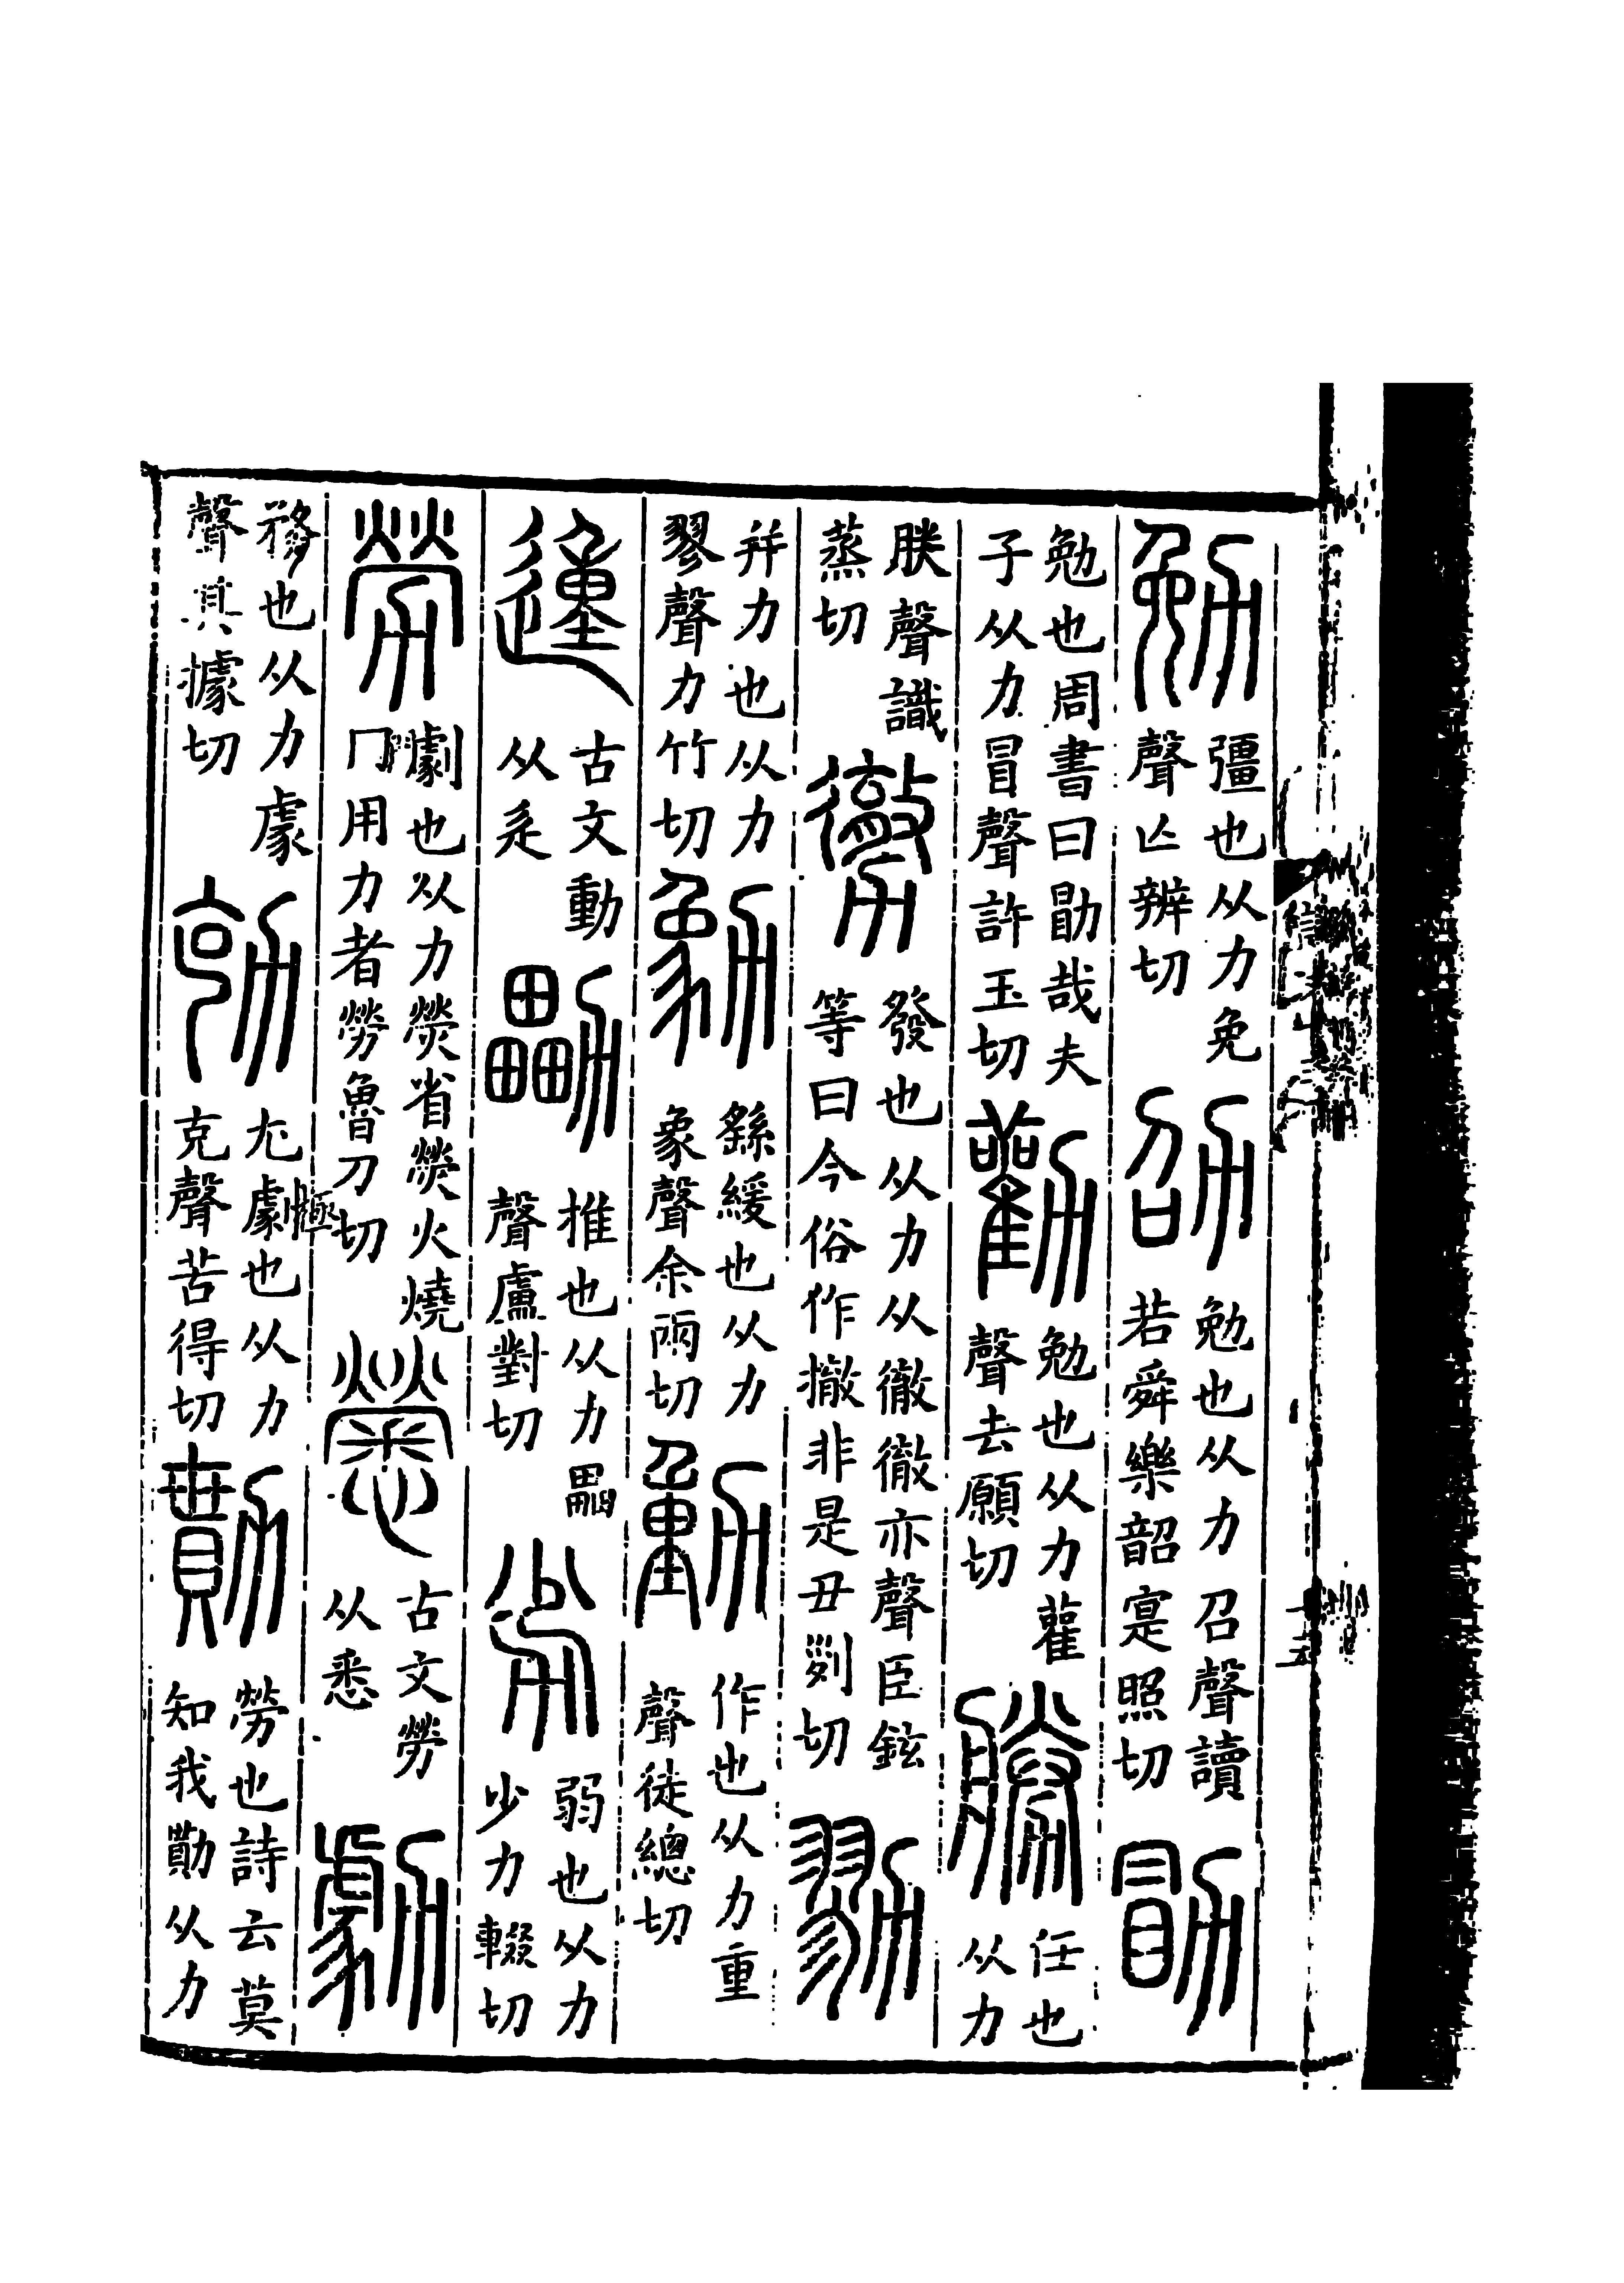 勉彊也从力免聲亾辨切劭勉也从力召聲讀若舜樂韶寔照切勖
勉也周書曰勖哉夫子从力冒聲許玉切勸勉也从力雚聲去願切勝任也从力
朕聲識蒸切勶發也从力从徹徹亦聲臣鉉等曰今俗作撤非是丑列切勠
并力也从力翏聲力竹切勨繇緩也从力象聲余兩切動作也从力重聲徒總切
古文動从辵推也从力畾聲盧對切劣弱也从力少力輟切
勞劇也从力熒省熒火燒冂用力者勞魯刀切古文勞从悉勮
務也从力豦聲其據切勊尤劇也从力克聲苦得切勩勞也詩云莫知我勩从力